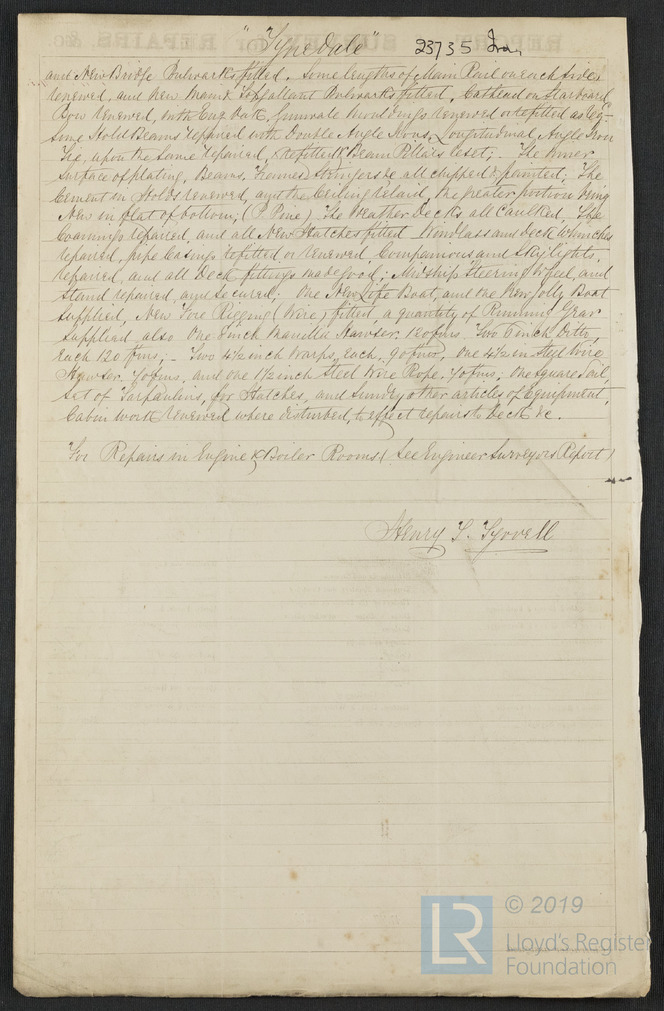 "Tynedale" 23735 Iron
and New Bridge Bulwarks fitted. Some lengths of Main Rail on each side
renewed, and New Main & Topgallant Bulwarks fitted. Cathead on Starboard
Bow renewed, with Eng Oak, Gunwale Mouldings renewed or refitted as req-
Some Hold Beams repaired with Double Angle Irons, Longitudinal Angle Iron
Tie, upon the Same repaired, & refitted & Beam Pillars reset; - The Inner
Surface of plating, Beams, Frames Stringers &c all chipped & painted; The
Cement in Holds renewed, and the Ceiling relaid, the greater portion being
New in flat of bottom, (P. Pine) The Weather Decks all Caulked, The
Coamings repaired, and all New Hatches fitted Windlass and Deck Winches
repaired, pipe Casings refitted or renewed, Companions and Skylights,
repaired, and all Deck fittings made good; Amidship Steering Wheel, and
Stand repaired, and Secured; One New Life Boat, and One New Jolly Boat
Supplied, New Fore Rigging (Wire) fitted, a quantity of Running Gear
Supplied also One 8 inch Manilla Hawser. 120 fms. Two 6 inch Ditto,
each 120 fms; - Two 4½ inch Warps, Each, 90 fms, One 4½ in Steel Wire
Hawser 70 fms, and one 1½ inch Steel Wire Rope. 70 fms. One square Sail,
Set of Tarpaulins, for Hatches, and Sundry other articles of Equipment,
Cabin work renewed where disturbed, to effect repairs to Deck &c.
For Repairs in Engine & Boiler Rooms (See Engineer Surveyors Report)
Henry T. Tyrrell
© 2019
LR
Lloyd's Register
Foundation